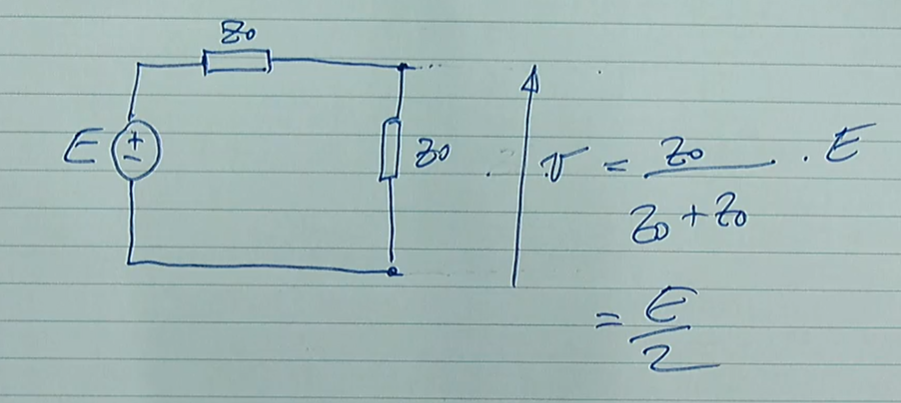 Z0
E + -
Z0
v = Z0 / (Z0 + Z0) . E
= E / 2